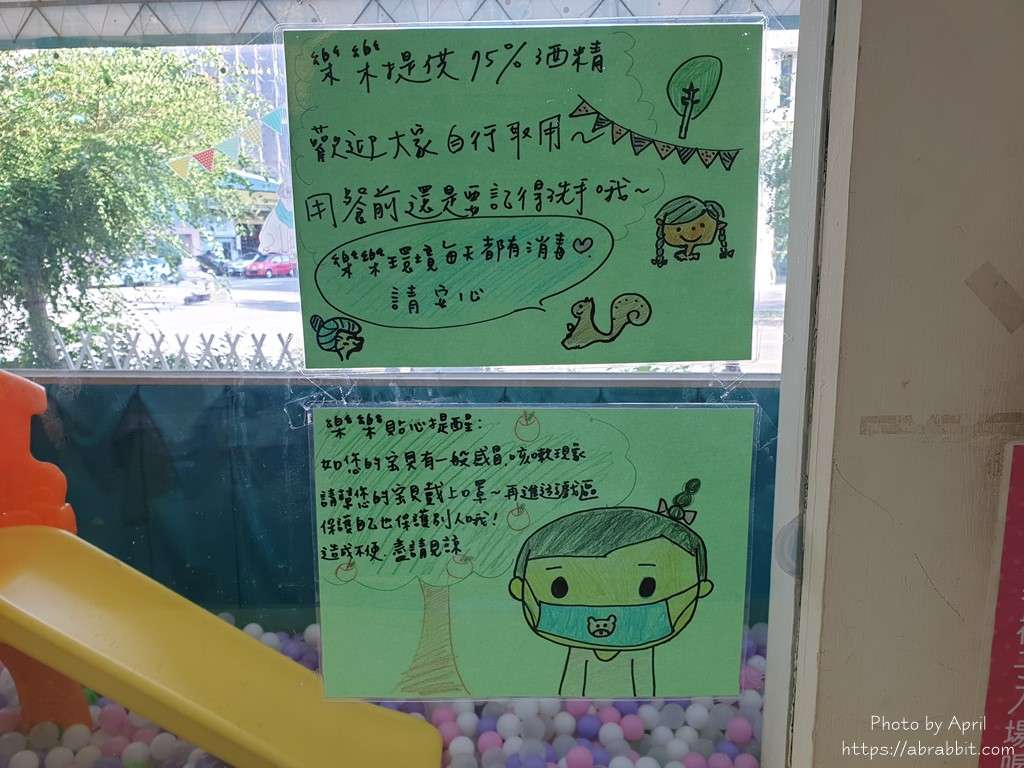 樂樂提供95%酒精
歡迎大家自行取用~
用餐前還是要記得洗手哦~
樂樂環境每天都有消毒♡.
請安心
樂樂貼心提醒:
如您的寶貝有一般感冒.咳嗽現象
請幫您的寶貝戴上口罩~再進遊戲區
保護自己也保護別人哦!
造成不便.盡請見諒
Photo by April
https://abrabbit.com